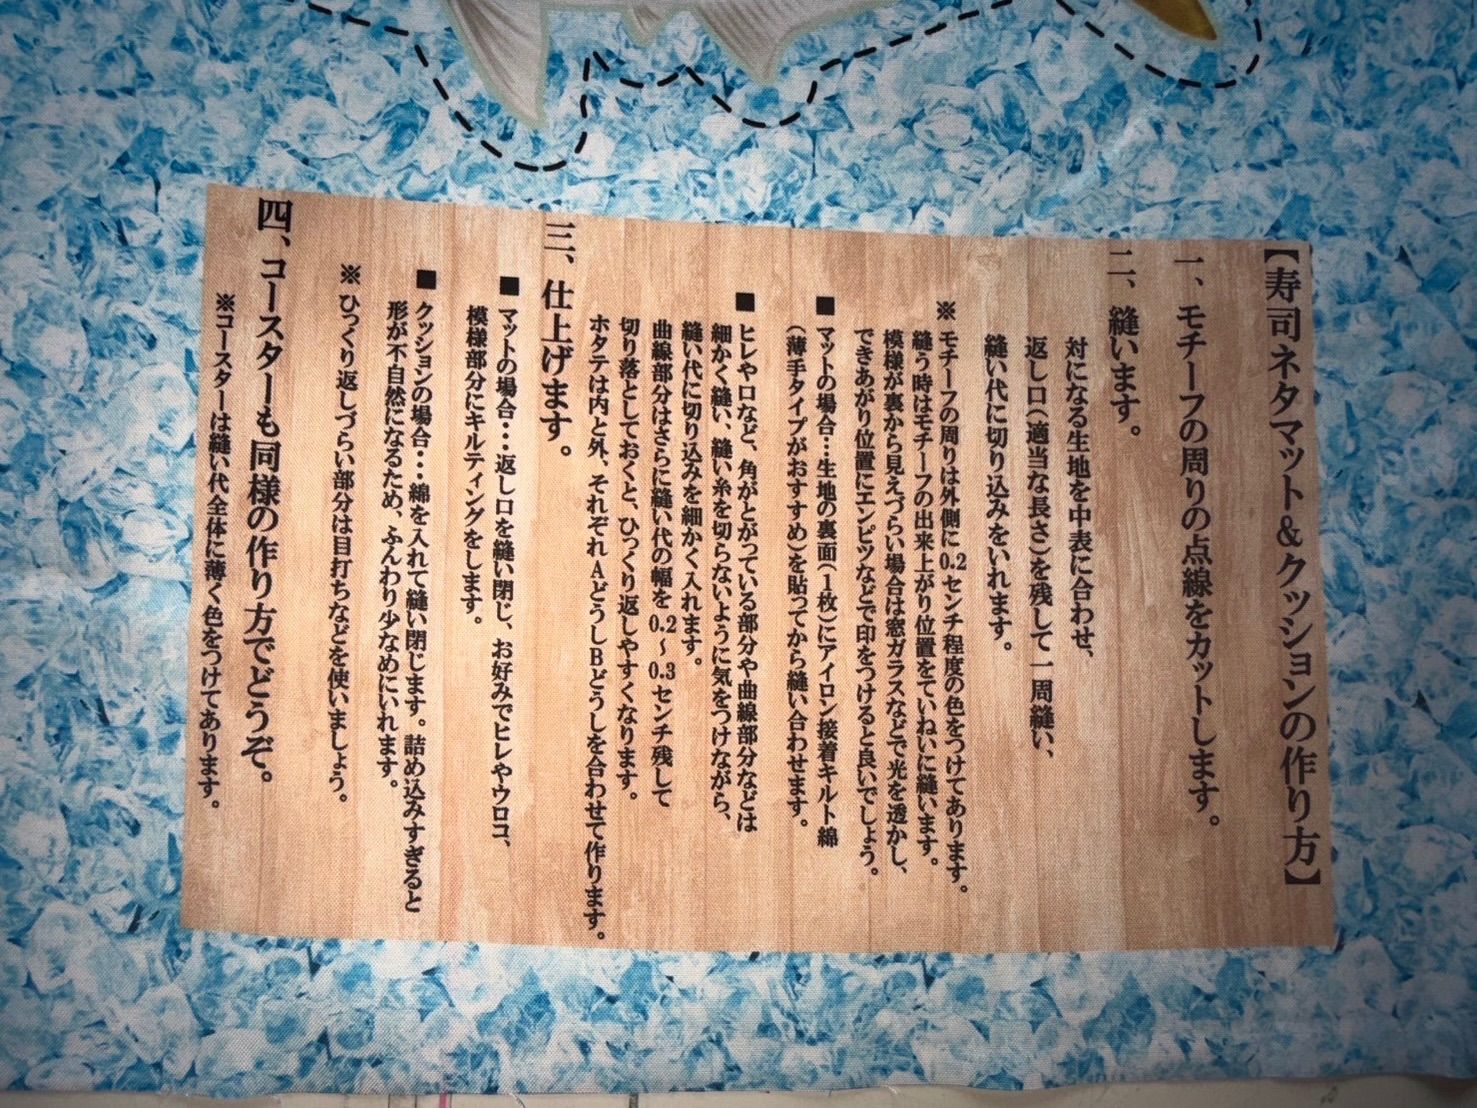 【寿司ネタマット&クッションの作り方】
一、モチーフの周りの点線をカットします。
二、縫います。
対になる生地を中表に合わせ、
返し口(適当な長さ)を残して一周縫い、
縫い代に切り込みをいれます。
※モチーフの周りは外側に0.2センチ程度の色をつけてあります。
縫う時はモチーフの出来上がり位置をていねいに縫います。
模様が裏から見えづらい場合は窓ガラスなどで光を透かし、
できあがり位置にエンピツなどで印をつけると良いでしょう。
■マットの場合…生地の裏面(1枚)にアイロン接着キルト綿
(薄手タイプがおすすめ)を貼ってから縫い合わせます。
■ヒレや口など、角がとがっている部分や曲線部分などは
細かく縫い、縫い糸を切らないように気をつけながら、
縫い代に切り込みを細かく入れます。
曲線部分はさらに縫い代の幅を0.2〜0.3センチ残して
切り落としておくと、ひっくり返しやすくなります。
ホタテは内と外、それぞれAどうしBどうしを合わせて作ります。
三、仕上げます。
■マットの場合…返し口を縫い閉じ、お好みでヒレやウロコ、
模様部分にキルティングをします。
■クッションの場合…綿を入れて縫い閉じます。詰め込みすぎると
形が不自然になるため、ふんわり少なめにいれます。
※ひっくり返しづらい部分は目打ちなどを使いましょう。
四、コースターも同様の作り方でどうぞ。
※コースターは縫い代全体に薄く色をつけてあります。